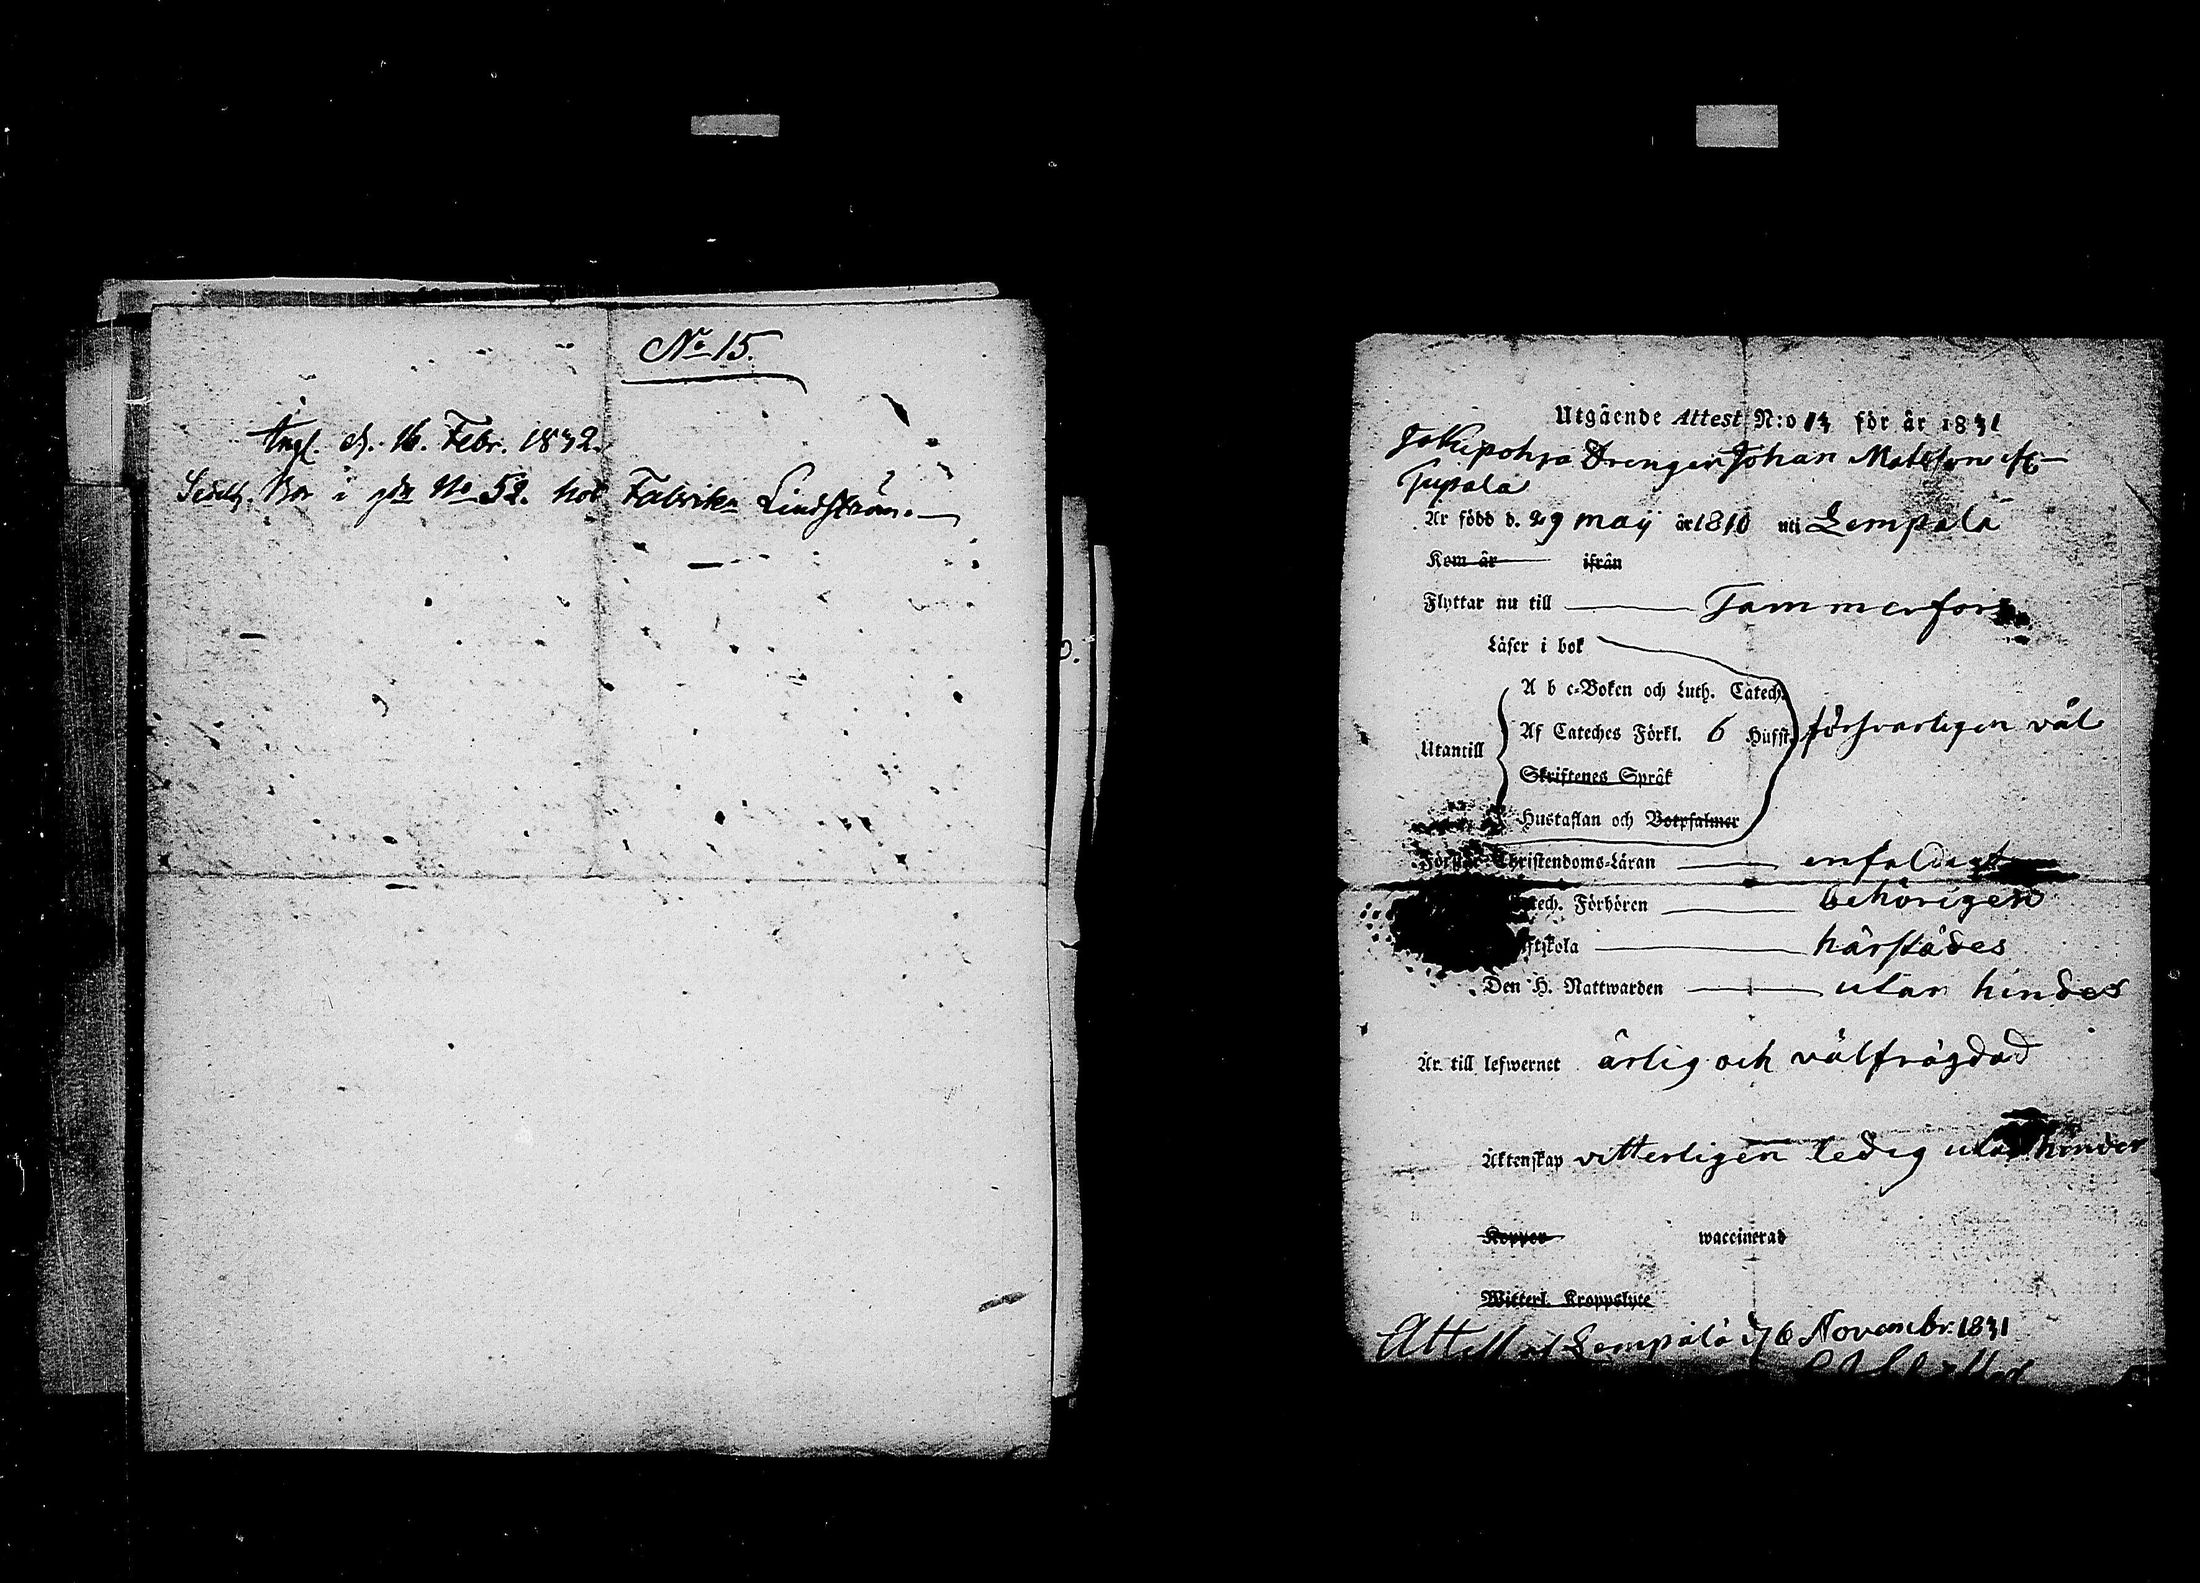 No 15.
Angl. d. 16. Febr. 1832.
Bor i gdn No 52. hos Fabrikn Lindström.
Utgående Attest N:o 13 för år 1831
Jokipohja Drengen Johan Matsson
Är född d. 29 may år 1810 uti Lempälä
Kom år ifrån
Flyttar nu till Tammerfors
Läser i bok
A b c-Boken och Luth. Catech.
Utantill Af Cateches Förkl. 6 Hufst. försvarligen väl
Skriftenes Språk
Hustaflan och Botpsalmer
Förstår Christendoms-Läran enfaldigt
tech. Förhören behörigen
ftskola härstädes
Den H. Nattwarden utan hinder
Är till lefwernet ärlig och välfrägdad
Äktenskap vitterligen ledig utan hinder
Koppor waccinerad
Witterl. Kroppslyte
Attest af Lempälä d 6 Novembr. 1831